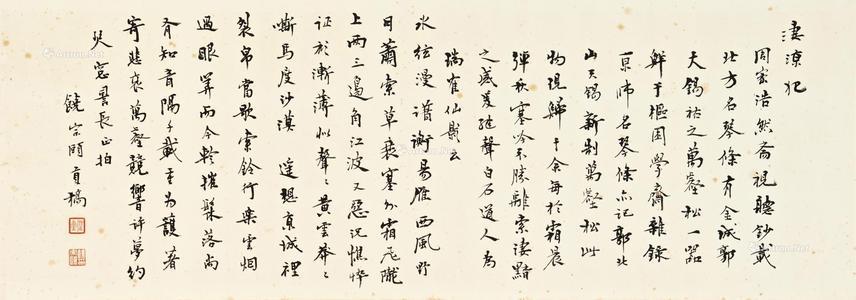 淒涼犯
周密浩然齋視聽鈔載
北方名琴條有金城郭
天錫祐之萬壑松一器
鮮于樞困學齋雜錄
京師名琴條亦記郭北
山天錫新制萬壑松此
物現歸于余每於霜晨
彈秋塞吟不勝離索淒黯
之感爰繼聲白石道人為
瑞鶴仙影云
冰絃漫譜衡陽雁西風野
日蕭索草衰塞外霜飛隴
上兩三邊角江波又惡況憔悴
征衫漸薄似聲聲黃雲莽莽
嘶馬度沙漠 遙想京城裡
裂帛當歌索鈴行樂雲烟
過眼算而今輕摧鬢落尚
有知音隔千載重為護著
寄悲哀萬壑競響許夢約
吳窓詞長正拍
饒宗頤貢稿